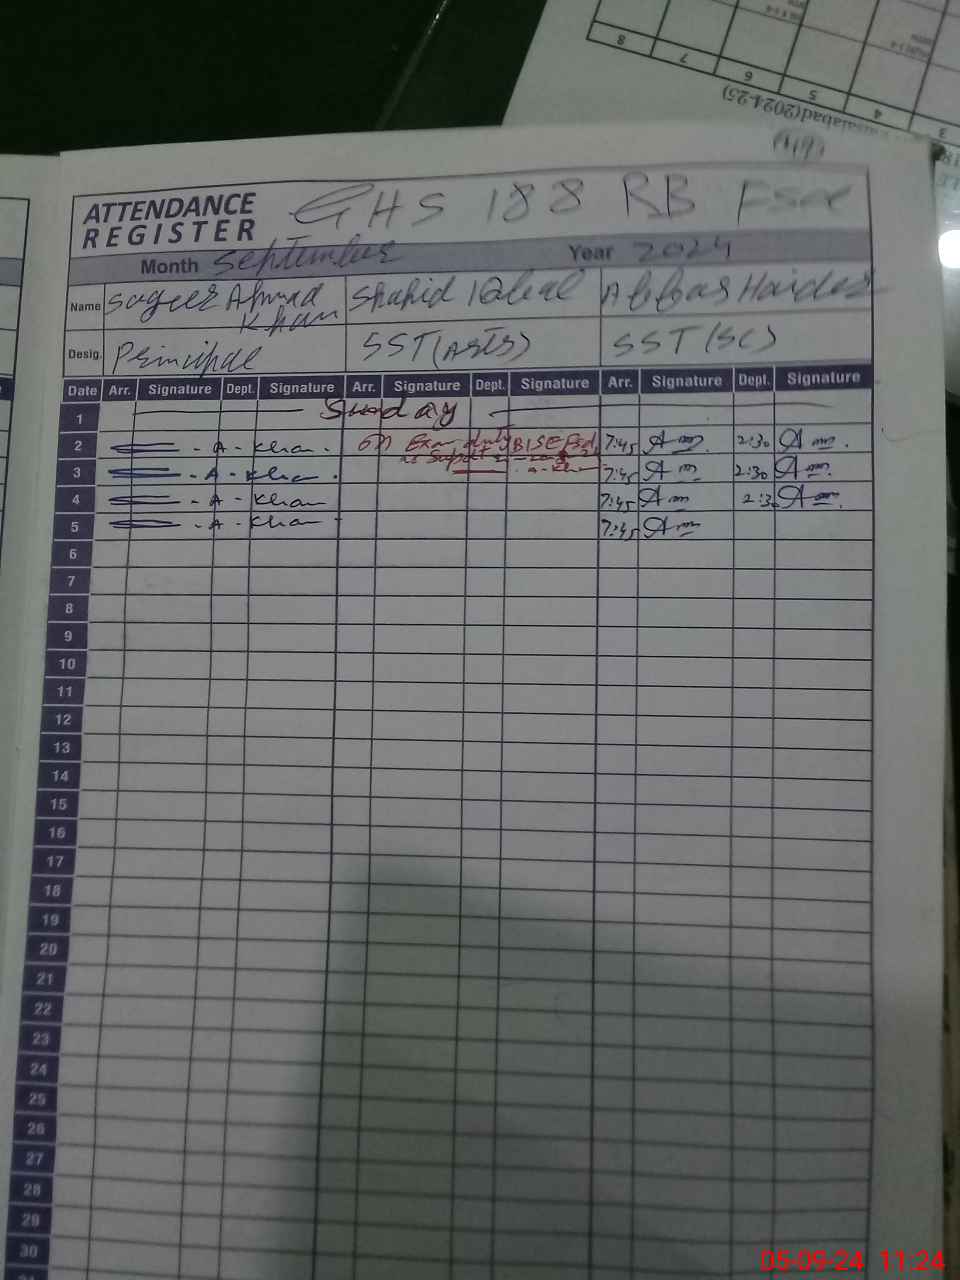 8 7 6 5 4 3
(2024-25)
ATTENDANCE
REGISTER
GHS 188 RB Fsd
Month September Year 2024
Name Sageer Ahmad Khan Shahid Iqbal Abbas Haider
Desig. Principal SST (Arts) SST (SC)
Date Arr. Signature Dept. Signature Arr. Signature Dept. Signature Arr. Signature Dept. Signature
1 Sunday
2 - A - Khan . on Exam duty BISE Fsd 7:45 2:30
3 - A - Khan . A-Khan 7:45 2:30
4 - A - Khan 7:45 2:3
5 - A - Khan 7:45
6
7
8
9
10
11
12
13
14
15
16
17
18
19
20
21
22
23
24
25
26
27
28
29
30
05-09-24 11:24